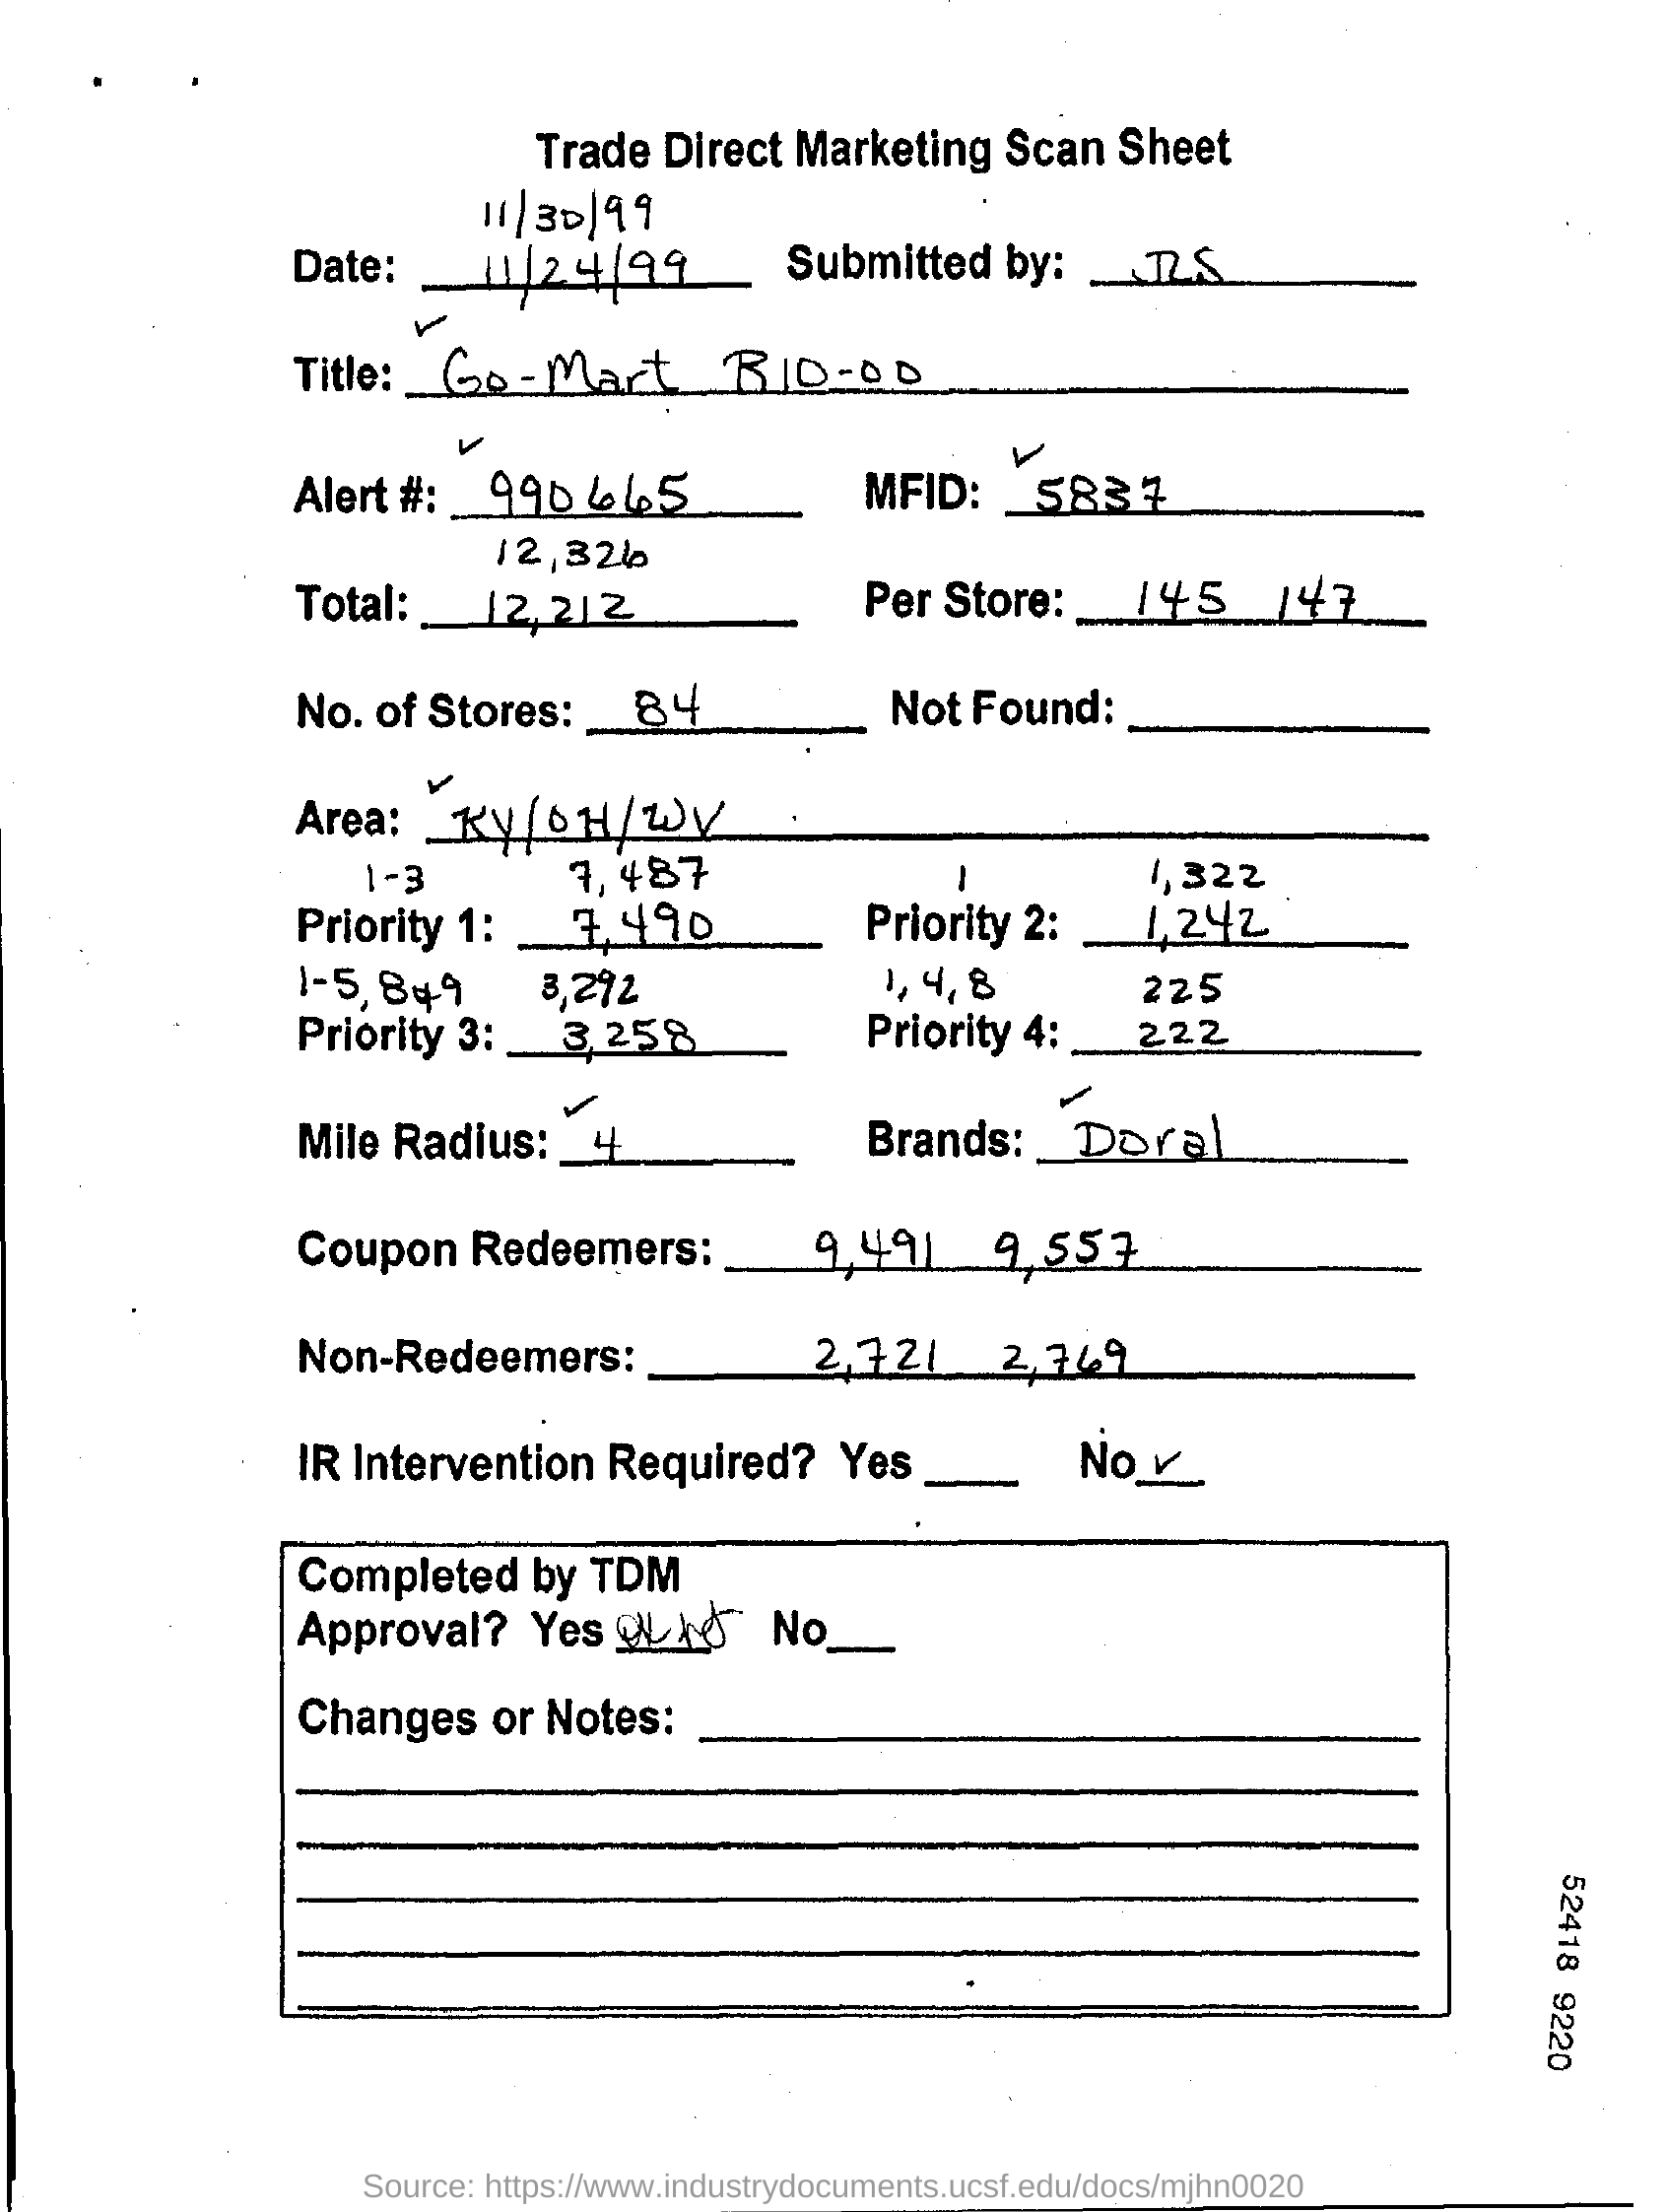 Trade Direct Marketing Scan Sheet
11/30/99
Date: 11/24/99 Submitted by: JRS
Title: Go-Mart B10-00
Alert #: 990665 MFID: 5837
12,326
Total: 12,212 Per Store: 145 147
No. of Stores: 84 Not Found:
Area: KY/OH/WV
1-3 7,487 1 1,322
Priority 1: 7,490 Priority 2: 1,242
1-5, 8+9 3,292 1, 4, 8 225
Priority 3: 3,258 Priority 4: 222
Mile Radius: 4 Brands: Doral
Coupon Redeemers: 9,491 9,557
Non-Redeemers: 2,721 2,769
IR Intervention Required? Yes No ✓
Completed by TDM
Approval? Yes No
Changes or Notes:
52418 9220
Source: https://www.industrydocuments.ucsf.edu/docs/mjhn0020